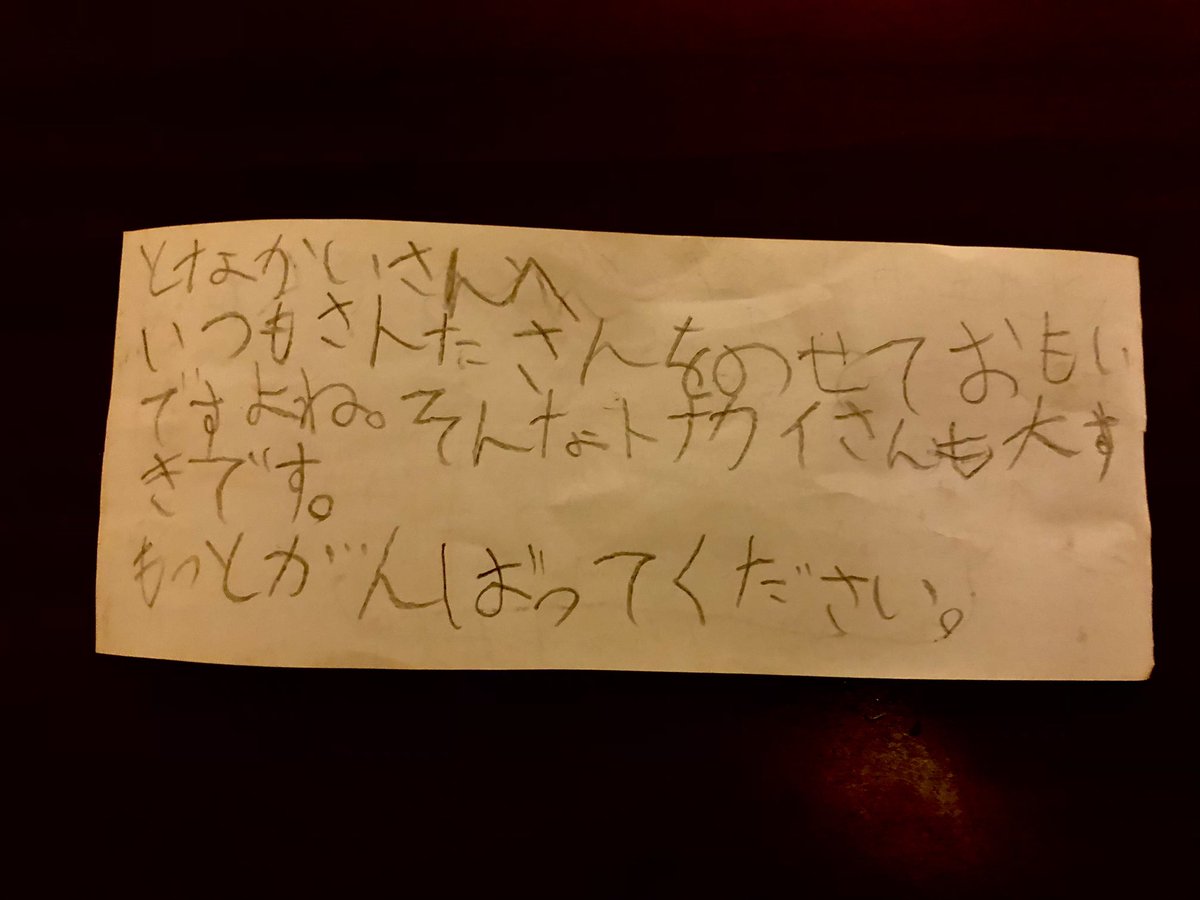 となかいさんへ
いつもさんたさんをのせておもい
ですよね。そんなトナカイさんも大す
きです。
もっとがんばってください。